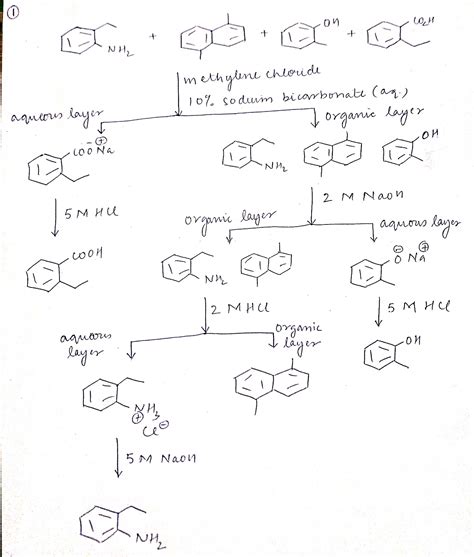 ①
NH2 + + OH + CO2H
methylene chloride
10% sodium bicarbonate (aq.)
aqueous layer
organic layer
COO⊖Na⊕
NH2
OH
5 M HCl
2 M NaOH
organic layer
aqueous layer
COOH
NH2
O⊖ Na⊕
2 M HCl
5 M HCl
aqueous layer
organic layer
OH
NH3
⊕
Cl⊖
5 M NaOH
NH2